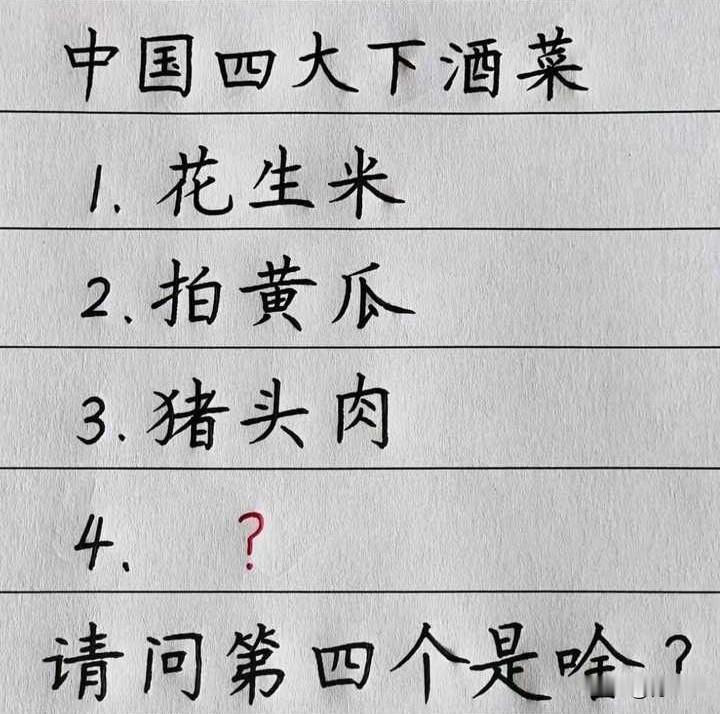 中国四大下酒菜
1. 花生米
2. 拍黄瓜
3. 猪头肉
4. ?
请问第四个是啥?